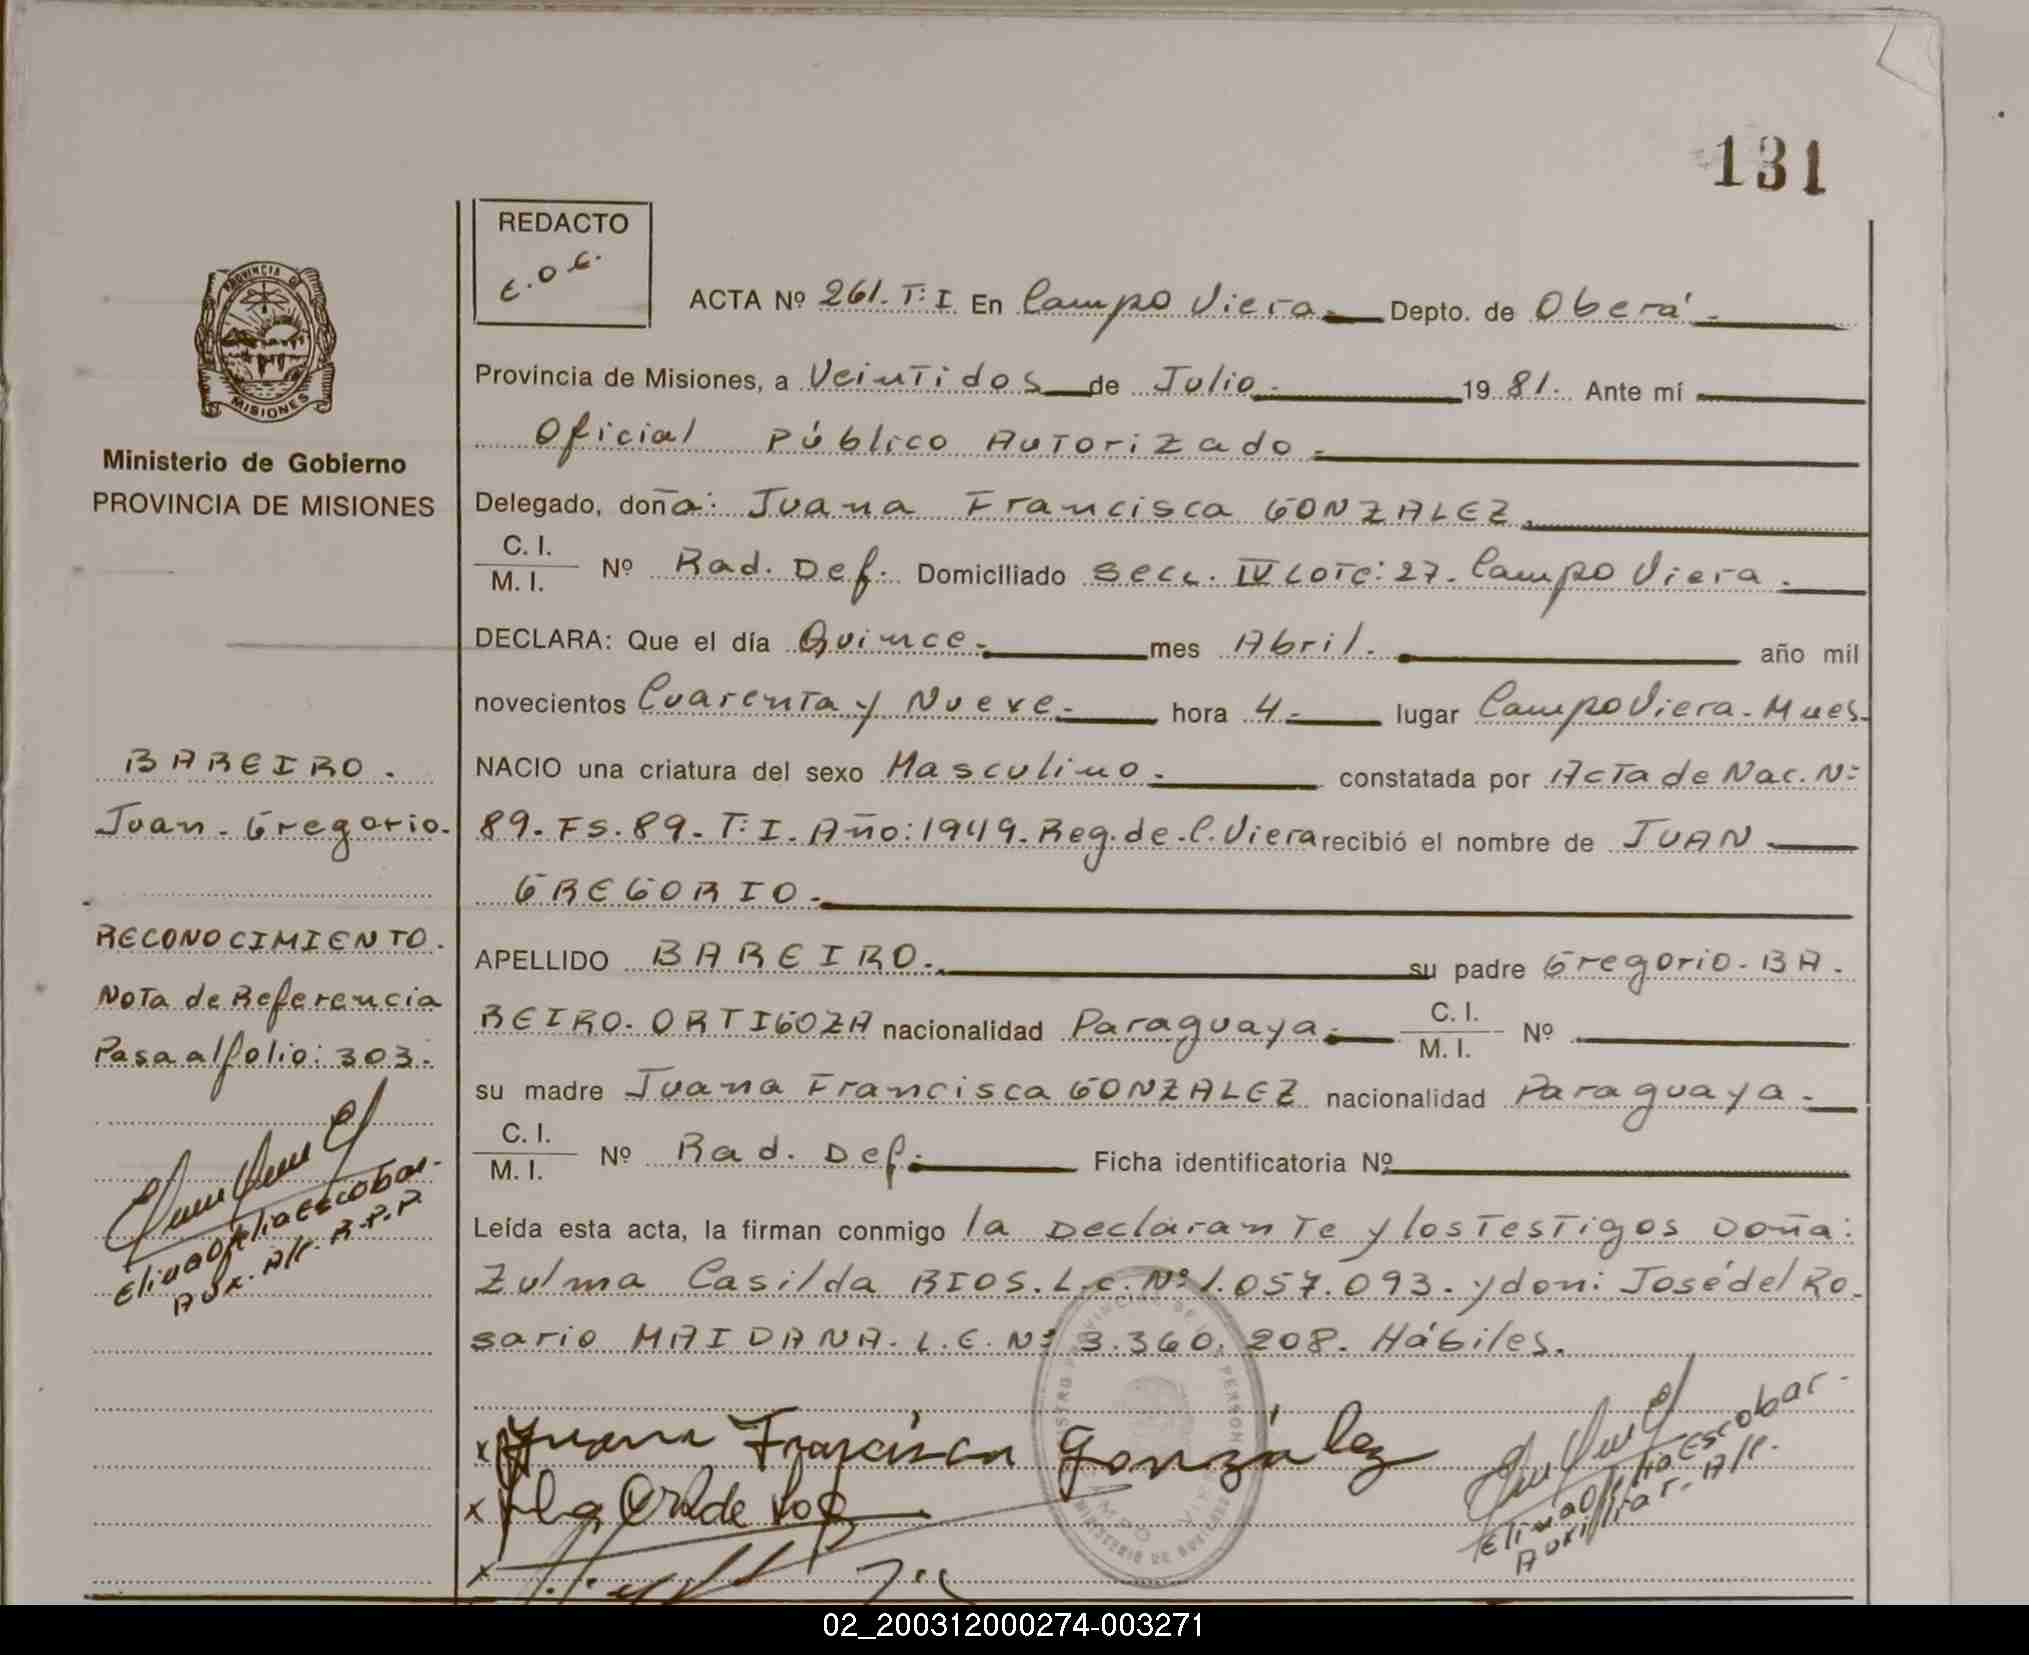 131
REDACTO
E.O.E.
ACTA Nº 261. T: I En Campo Viera. Depto. de Oberá.
Provincia de Misiones, a Veintidos de Julio. 1981. Ante mí
Oficial Público Autorizado.
Delegado, doña: Juana Francisca GONZALEZ.
C. I.
M. I. Nº Rad. Def. Domiciliado Secc. IV Lote: 27. Campo Viera.
DECLARA: Que el día Quince. mes Abril. año mil
novecientos Cuarenta y Nueve. hora 4. lugar Campo Viera. Mnes.
NACIO una criatura del sexo Masculino. constatada por Acta de Nac. Nº
89. Fs. 89. T: I. Año: 1949. Reg. de. C. Viera recibió el nombre de JUAN
GREGORIO.
APELLIDO BAREIRO. su padre Gregorio. BA.
REIRO. ORTIGOZA nacionalidad Paraguaya. C. I.
M. I. Nº
su madre Juana Francisca GONZALEZ nacionalidad Paraguaya.
C. I.
M. I. Nº Rad. Def. Ficha identificatoria Nº
Leída esta acta, la firman conmigo la Declarante y los Testigos Doña:
Zulma Casilda RIOS. L.C. Nº 1.057.093. y don: José del Ro.
sario MAIDANA. L.E. Nº 3.360.208. Hábiles.
x Juana Francisca González
x
x
Escobar.
Auxiliar. All.
PROVINCIA DE
MISIONES
Ministerio de Gobierno
PROVINCIA DE MISIONES
BAREIRO.
Juan. Gregorio.
RECONOCIMIENTO.
Nota de Referencia
Pasa al folio: 303.
Escobar.
Aux. All. R.P.P.
02_200312000274-003271